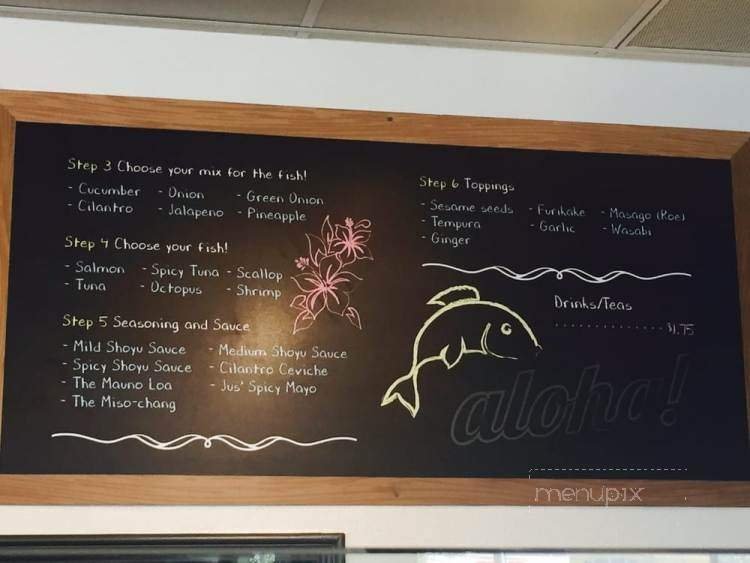 Step 3 Choose your mix for the fish!
- Cucumber - Onion - Green Onion
- Cilantro - Jalapeno - Pineapple
Step 4 Choose your fish!
- Salmon - Spicy Tuna - Scallop
- Tuna - Octopus - Shrimp
Step 5 Seasoning and Sauce
- Mild Shoyu Sauce - Medium Shoyu Sauce
- Spicy Shoyu Sauce - Cilantro Ceviche
- The Mauno Loa - Jus' Spicy Mayo
- The Miso-chang
Step 6 Toppings
- Sesame seeds - Furikake - Masago (Roe)
- Tempura - Garlic - Wasabi
- Ginger
Drinks/Teas
. . . . . . . . . . . . . . . . $1.75
aloha!
menupix